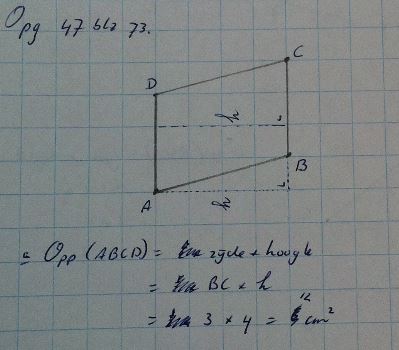 Opg 47 blz 73.
C
D
h
B
A
h
a Opp (ABCD) = zijde * hoogte
= BC * h
= 3 * 4 = 12 cm²